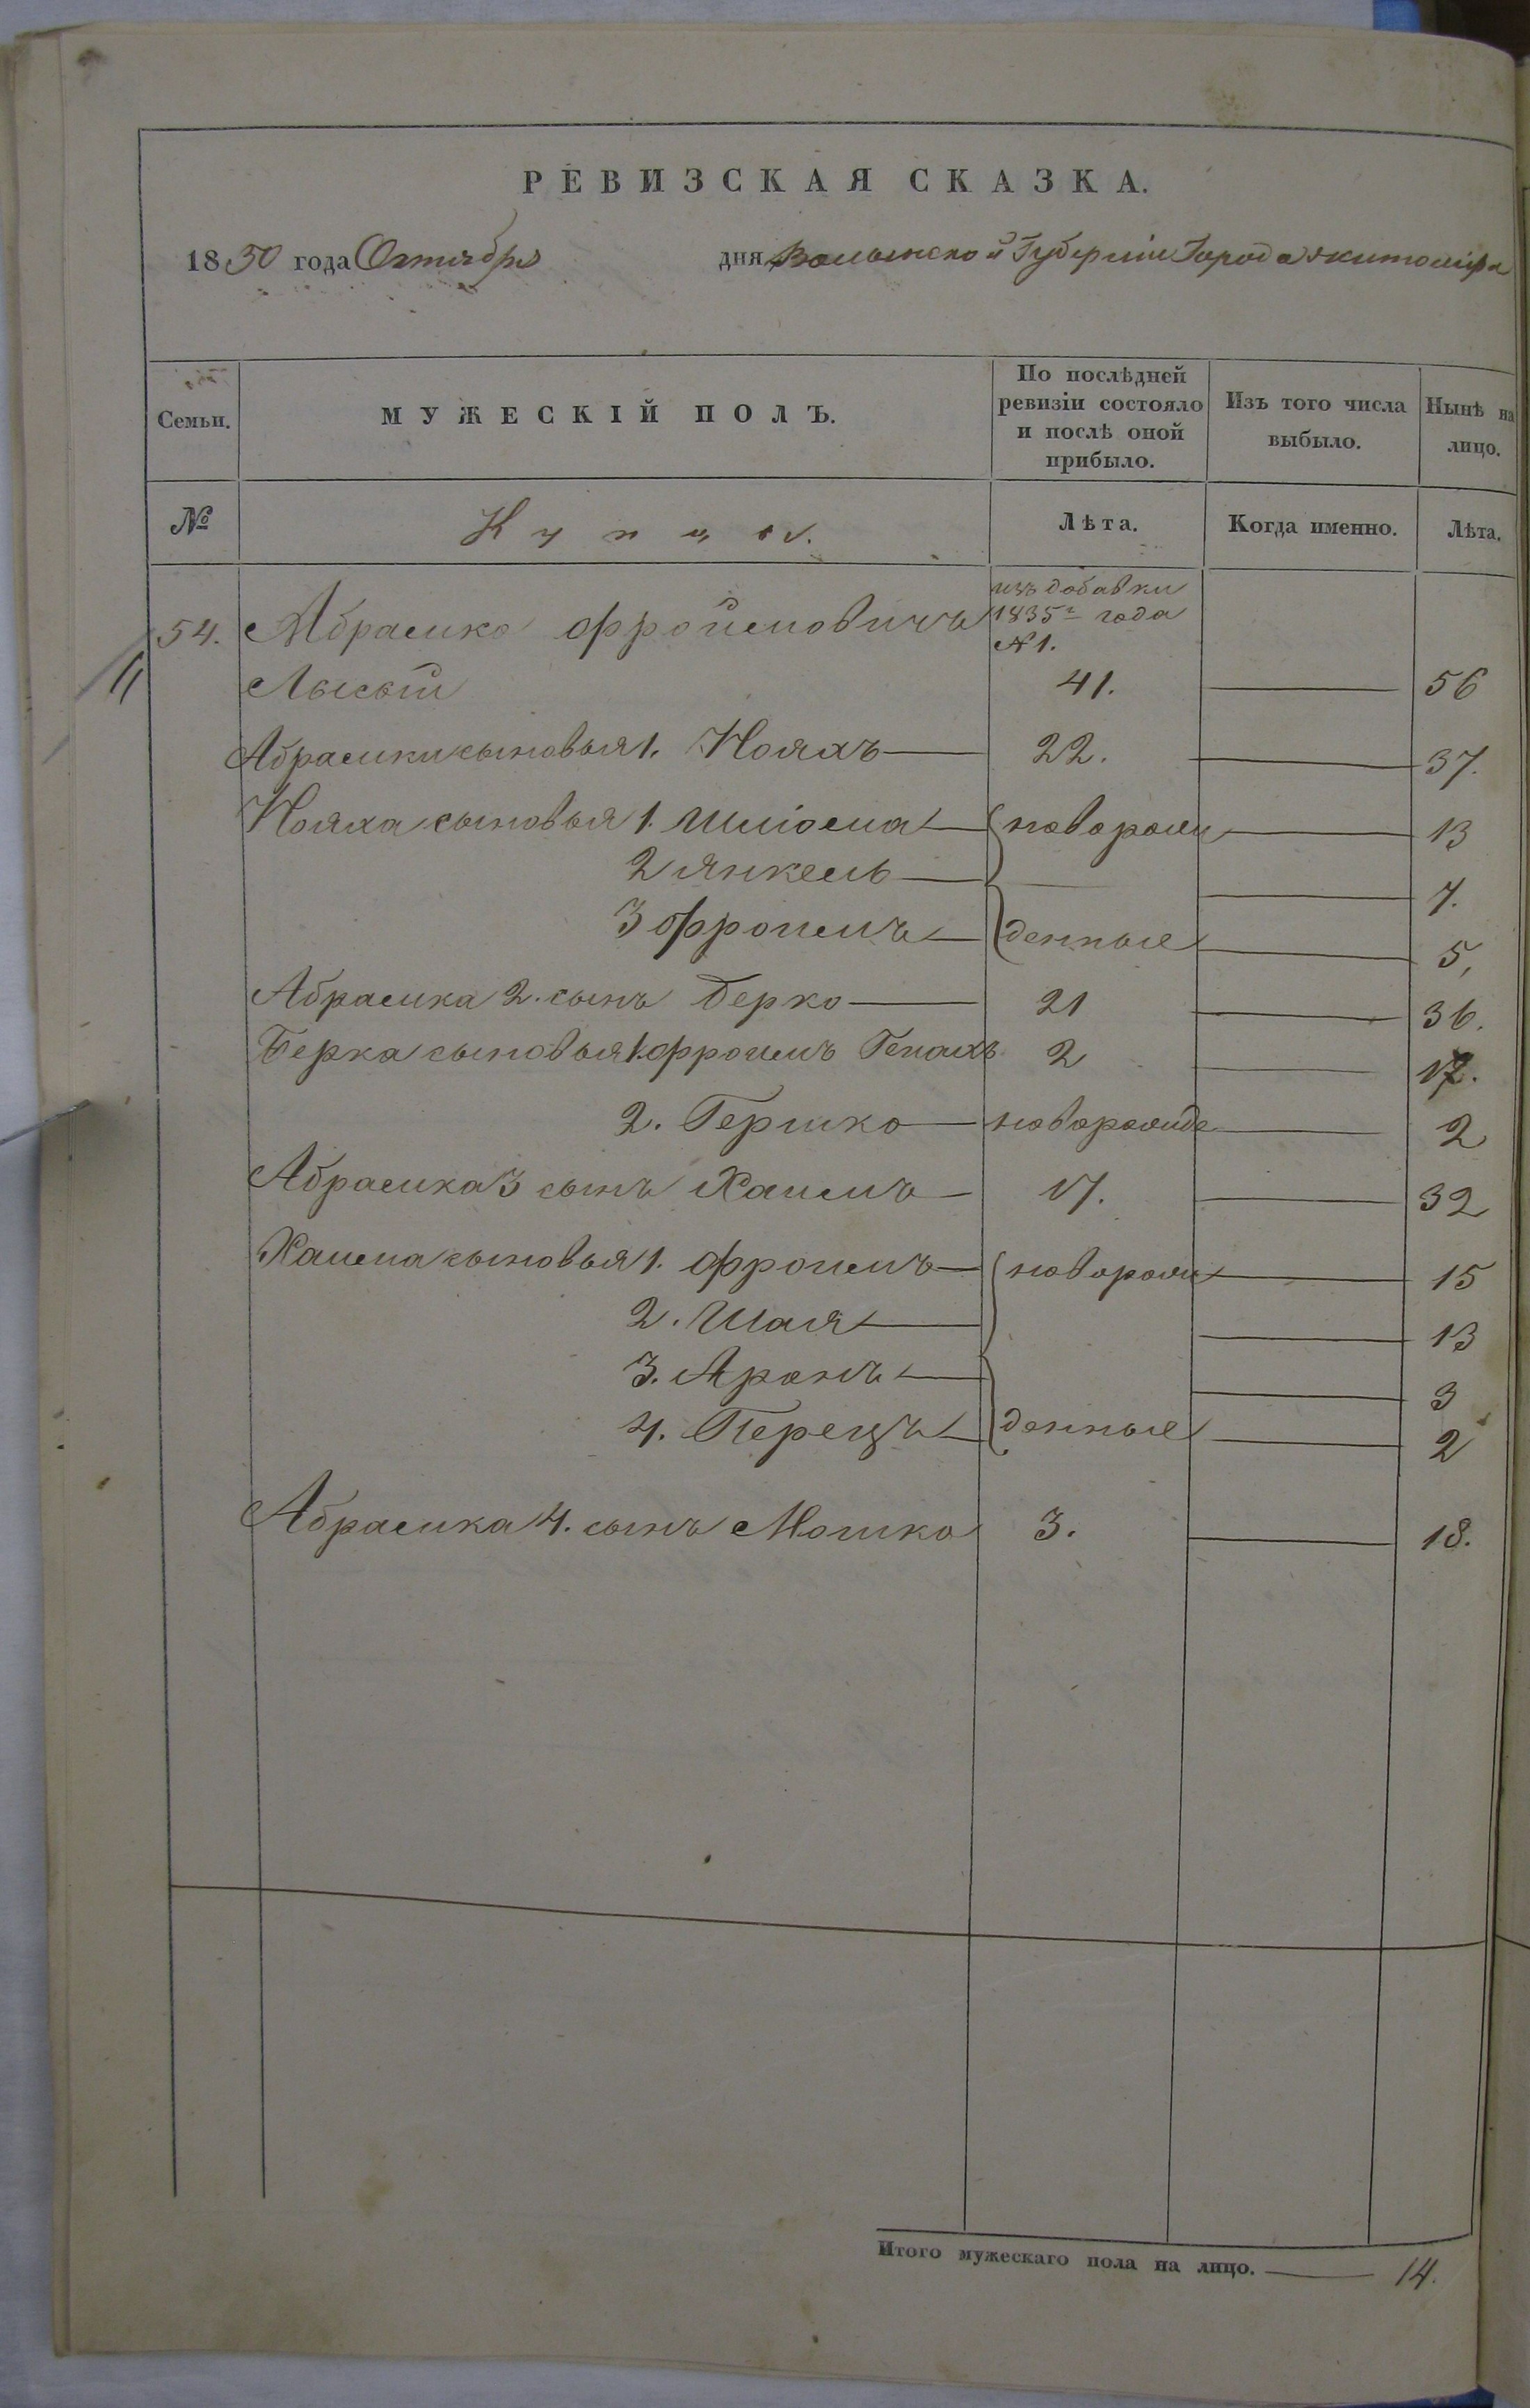 РЕВИЗСКАЯ СКАЗКА.
1850 года Октября дня Волынской Губерніи Города Житоміра
Семьи. МУЖЕСКІЙ ПОЛЪ. По послѣдней ревизіи состояло и послѣ оной прибыло. Изъ того числа выбыло. Нынѣ на лицо.
№ Купцы. Лѣта. Когда именно. Лѣта.
изъ добавки
54. Абрамко Фроймовичъ 1835г года
№ 1.
Лысый 41. 56
Абрамки сыновья 1. Нояхъ 22. 37.
Нояха сыновья 1. Шліома новорож 13
2 Янкель 7.
3 Фроимъ денные 5,
Абрамка 2. сынъ Берко 21 36.
Берка сыновья 1. Фроимъ Генахъ 2 17.
2. Гершко новорожде 2
Абрамка 3 сынъ Хаимъ 17. 32
Хаима сыновья 1. Фроимъ новорож 15
2. Шая 13
3. Аронъ 3
4. Перецъ денные 2
Абрамка 4. сынъ Мошко 3. 18.
Итого мужескаго пола на лицо. 14.